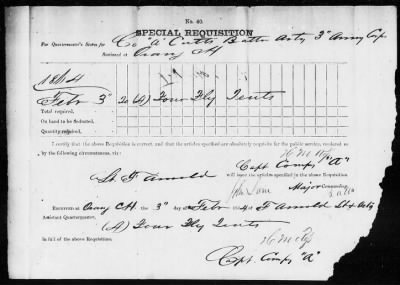 No. 40.
SPECIAL REQUISITION
For Quartermaster's Stores for Co "A" Cutts Battn Arty 3" Army Cps
Stationed at Orang CH
1864
Febr 3" To (4) Four Fly Tents
Total required,
On hand to be deducted,
Quantity required,
I certify that the above Requisition is correct, and that the articles specified are absolutely requisite for the public service, rendered so
by the following circumstances, viz:
Capt Comg "A"
Lt F Arnold will issue the articles specified in the above Requisition.
Major Commanding
Received at Orang CH the 3" day of Febr 1864 of F Arnold Lt &
Assistant Quartermaster,
(4) Four Fly Tents
in full of the above Requisition.
Capt. Comg "A"